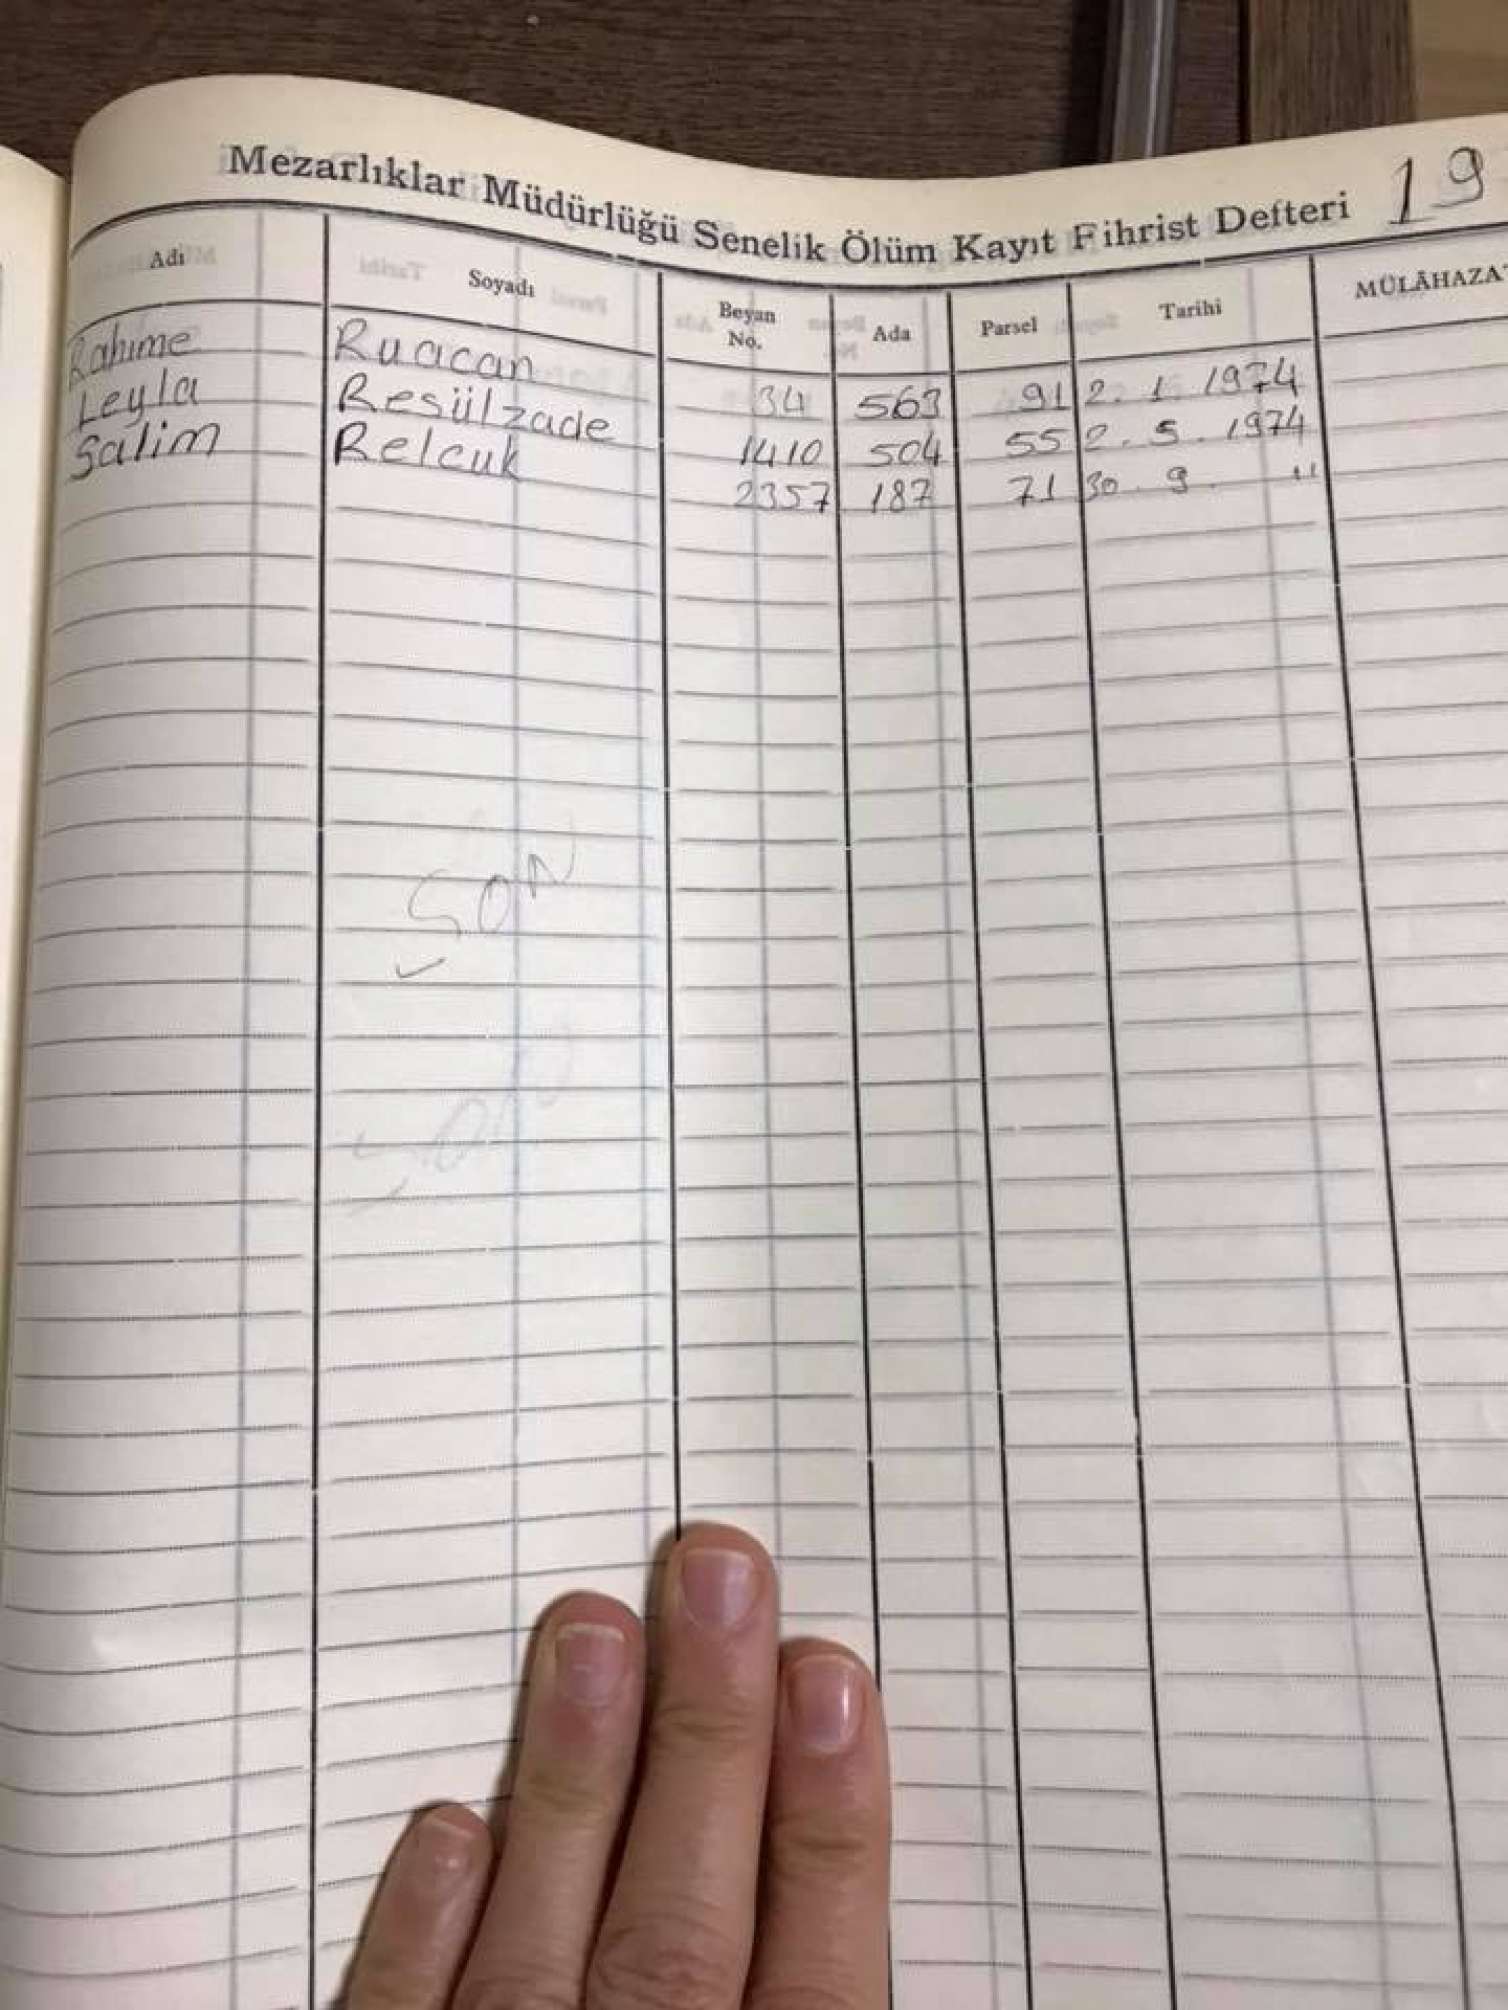 Mezarlıklar Müdürlüğü Senelik Ölüm Kayıt Fihrist Defteri 19
Adı Soyadı Beyan No. Ada Parsel Tarihi MÜLÂHAZA
Rahime Ruacan 34 563 91 2. 1. 1974
Leyla Resülzade 1410 504 55 2. 5. 1974
Salim Relcuk 2357 187 71 30. 9. "
SON